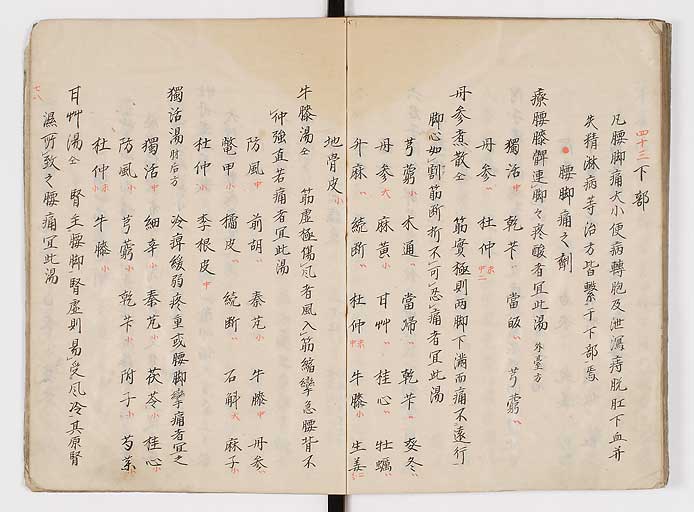 四十三 下部
凡腰脚痛大小便病轉胞及泄瀉痔脱肛下血并
失精淋病等治方皆繫于下部焉
腰脚痛之劑
療腰膝髀連脚々疼酸者宜此湯 外臺方
獨活中 乾芐〃 當皈〃 芎藭〃
丹参〃 杜仲
丹参煮散仝 筋實極則两脚下満而痛不遠行
脚心如割筋断折不可忍痛者宜此湯
芎藭小 木通〃 當歸〃 乾芐〃 麦冬〃
丹参大 麻黄小 甘艸〃 桂心〃 牡蠣〃
升麻〃 続断〃 杜仲 牛膝小 生姜
地骨皮小
牛膝湯仝 筋虚極傷風者風入筋縮攣急腰背不
伸強直若痛者宜此湯
防風中 前胡〃 秦艽小 牛膝中 丹参〃
鼈甲小 橘皮〃 続断〃 石斛大 麻子小
杜仲小 李根皮中
獨活湯肘后方 冷痺緩弱疼重或腰脚攣痛者宜之
獨活中 細辛小 秦艽小 茯苓小 桂心小
防風小 芎藭小 乾芐小 附子小 芍薬
杜仲 牛膝小
甘艸湯仝 腎主腰脚腎虚則易受風冷其原腎
濕所致之腰痛宜此湯
七八